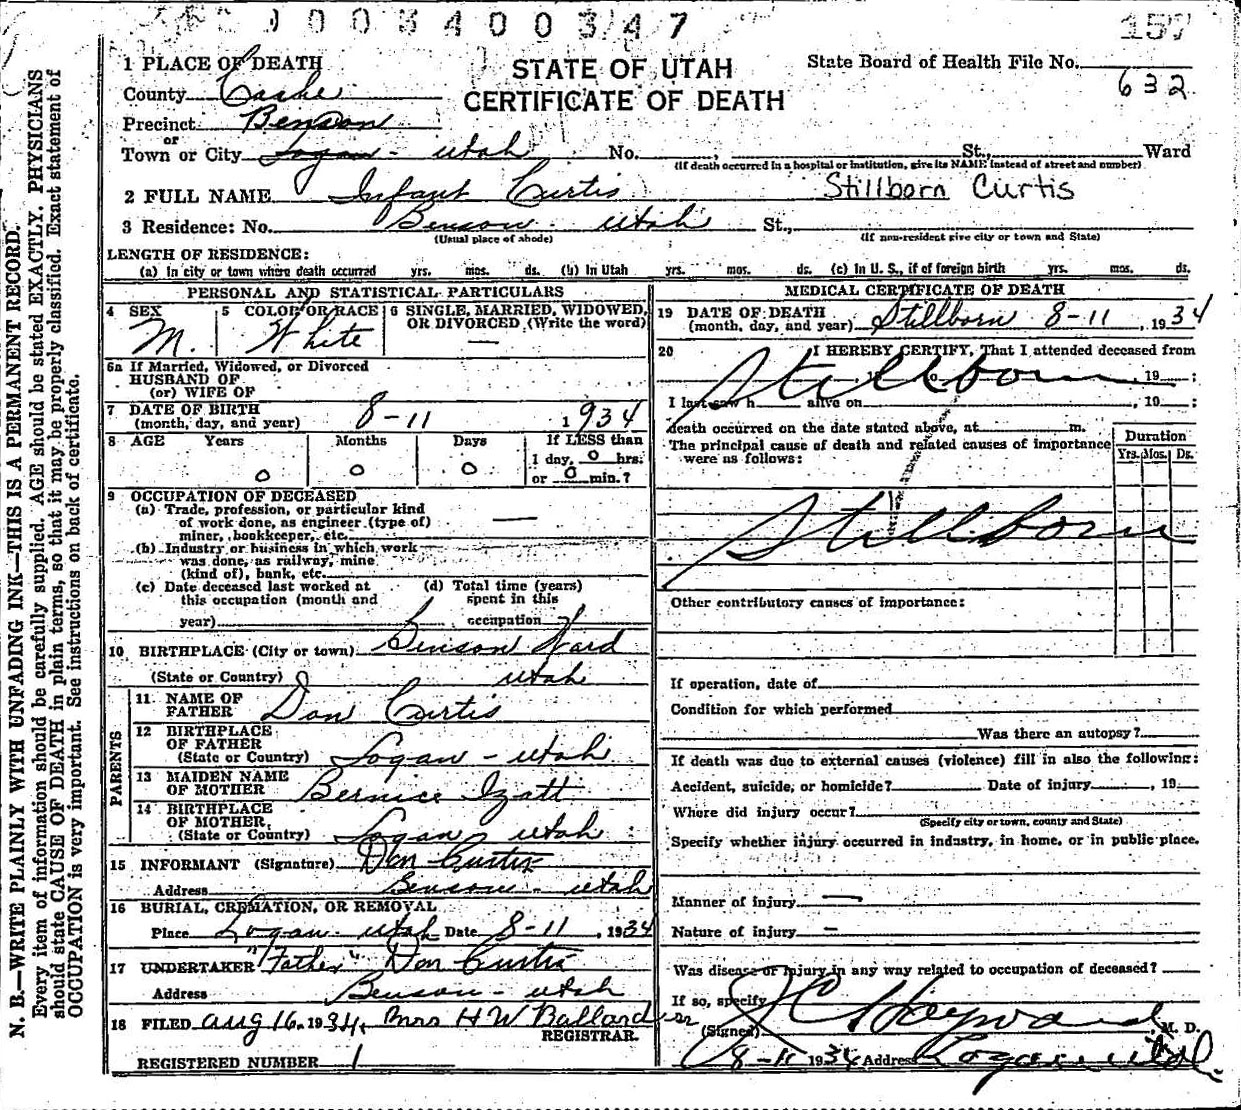 0003400347
157
1 PLACE OF DEATH
STATE OF UTAH
CERTIFICATE OF DEATH
State Board of Health File No.
632
County Cache
Precinct Benson
or
Town or City Logan - Utah No. St., Ward
(If death occurred in a hospital or institution, give its NAME instead of street and number)
2 FULL NAME Infant Curtis Stillborn Curtis
3 Residence: No. Benson - Utah St.,
(Usual place of abode) (If non-resident give city or town and State)
LENGTH OF RESIDENCE:
(a) In city or town where death occurred yrs. mos. ds. (b) In Utah yrs. mos. ds. (c) In U. S., if of foreign birth yrs. mos. ds.
PERSONAL AND STATISTICAL PARTICULARS
4 SEX M. 5 COLOR OR RACE White 6 SINGLE, MARRIED, WIDOWED, OR DIVORCED (Write the word) —
6a If Married, Widowed, or Divorced
HUSBAND OF
(or) WIFE OF
7 DATE OF BIRTH
(month, day, and year) 8-11 1934
8 AGE Years Months Days If LESS than
0 0 0 1 day, 0 hrs.
or 0 min.?
9 OCCUPATION OF DECEASED
(a) Trade, profession, or particular kind
of work done, as engineer (type of)
miner, bookkeeper, etc. —
(b) Industry or business in which work
was done, as railway, mine
(kind of), bank, etc.
(c) Date deceased last worked at
this occupation (month and
year)
(d) Total time (years)
spent in this
occupation
10 BIRTHPLACE (City or town) Benson Ward
(State or Country) Utah
PARENTS
11 NAME OF
FATHER Don Curtis
12 BIRTHPLACE
OF FATHER
(State or Country) Logan - Utah
13 MAIDEN NAME
OF MOTHER Bernice Izatt
14 BIRTHPLACE
OF MOTHER,
(State or Country) Logan, Utah
15 INFORMANT (Signature) Don Curtis
Address Benson - Utah
16 BURIAL, CREMATION, OR REMOVAL
Place Logan - Utah Date 8-11, 1934
17 UNDERTAKER "Father" Don Curtis
Address Benson - Utah
18 FILED Aug 16, 1934, Mrs H W Ballard
REGISTRAR.
REGISTERED NUMBER 1
MEDICAL CERTIFICATE OF DEATH
19 DATE OF DEATH
(month, day, and year) Stillborn 8-11, 1934
20 I HEREBY CERTIFY, That I attended deceased from
Stillborn, 19 ;
I last saw h alive on , 19 ;
death occurred on the date stated above, at m.
The principal cause of death and related causes of importance
were as follows:
Duration
Yrs. Mos. Ds.
Stillborn
Other contributory causes of importance:
If operation, date of
Condition for which performed
Was there an autopsy?
If death was due to external causes (violence) fill in also the following:
Accident, suicide, or homicide? Date of injury , 19
Where did injury occur?
(Specify city or town, county and State)
Specify whether injury occurred in industry, in home, or in public place.
Manner of injury —
Nature of injury —
Was disease or injury in any way related to occupation of deceased?
If so, specify
(Signed) J C Hayward, M. D.
8-11 1934 Address Logan Utah.
N. B.—WRITE PLAINLY WITH UNFADING INK—THIS IS A PERMANENT RECORD.
Every item of information should be carefully supplied. AGE should be stated EXACTLY. PHYSICIANS
should state CAUSE OF DEATH in plain terms, so that it may be properly classified. Exact statement of
OCCUPATION is very important. See instructions on back of certificate.